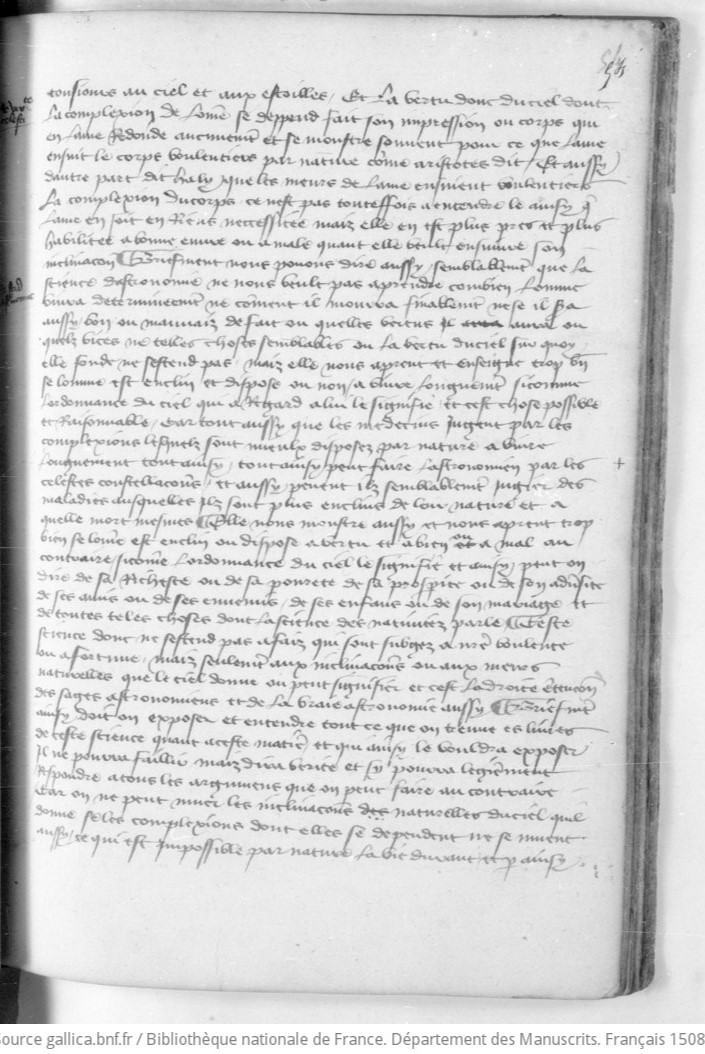 tonsiouis au ciel et aux estoilles / Et la vertu donc du ciel dont
la complexion de lome se deppend fait son impression ou corps qui
en lame redonde aucunement et se monstre souvent pour ce que lame
ensuit le corps voulentiers par nature come aristotes dit / Et aussy
dautre part dit haly que les meurs de lame ensuient voulentiers
la complexion du corps ce nest pas touteffois a entendre le ainsy q̄
lame en soit en riens neccessitee maiz elle en est plus pres et plus
habilitee a bonne euvre ou a male quant elle veult ensuivre son
inclinacion Briefment nous povons dire aussy semblablemt que la
science dastronomie ne nous veult pas aprendre combien lomme
vivra determineemt ne coment il mourra finablemt ne se il sera
aussy bon ou mauvaiz de fait ou quelles vertus il aura ou
quelz vices ne telles choses semblables ou la vertu du ciel sur quoy
elle fonde ne sestend pas / maiz elle nous aprent et enseigne trop bn
se lomme est enclin et dispose ou non a vivre longuemt si comme
lordonnance du ciel qui a regard a lui le signifie et cest chose possible
et raisonnable / Car tout aussy que les medecins jugent par les
complexions lesquelz sont mieulx disposez par nature a vivre
longuement tout ainsy / tout ainsy peut faire lastronomien par les
celestes constellacions / et aussy peuent ilz semblablemt jugier des
maladies ausquelles ilz sont plus enclins de leur nature et a
quelle mort mesmes Elle nous monstre aussy et nous aprent trop
bien se lome est enclin ou dispose a vertu et a bien ou a mal au
contraire si come lordonnance du ciel le signifie et ainsy peut on
dire de sa richesse ou de sa povrete de sa prosperite ou de son adversite
de ses amis ou de ses ennemis / de ses enfans ou de son mariage et
de toutes teles choses dont la science des nativitez parle Ceste
science donc ne sestend pas a faiz qui sont subgez a nre voulente
ou a fortune / maiz seulemt aux inclinacions ou aux meurs
naturelles que le ciel donne ou peut signifier et cest la droite entencion
des sages astronomiens et de la vraie astronomie aussy Briefmt
ainsy doit on exposer et entendre tout ce que on treuve es livres
de ceste science quant a ceste matiere et qui ainsy le vouldra exposer
il ne pourra faillir maiz dira verite et sy pourra legierement
respondre a tous les argumens que on peut faire au contraire
Car on ne peut muer les inclinacions des naturelles du ciel quil
donne se les complexions dont elles se dependent ne se muent
aussy / ce qui est impossible par nature la vie durant et p ainsy
+
Source gallica.bnf.fr / Bibliothèque nationale de France. Département des Manuscrits. Français 1508